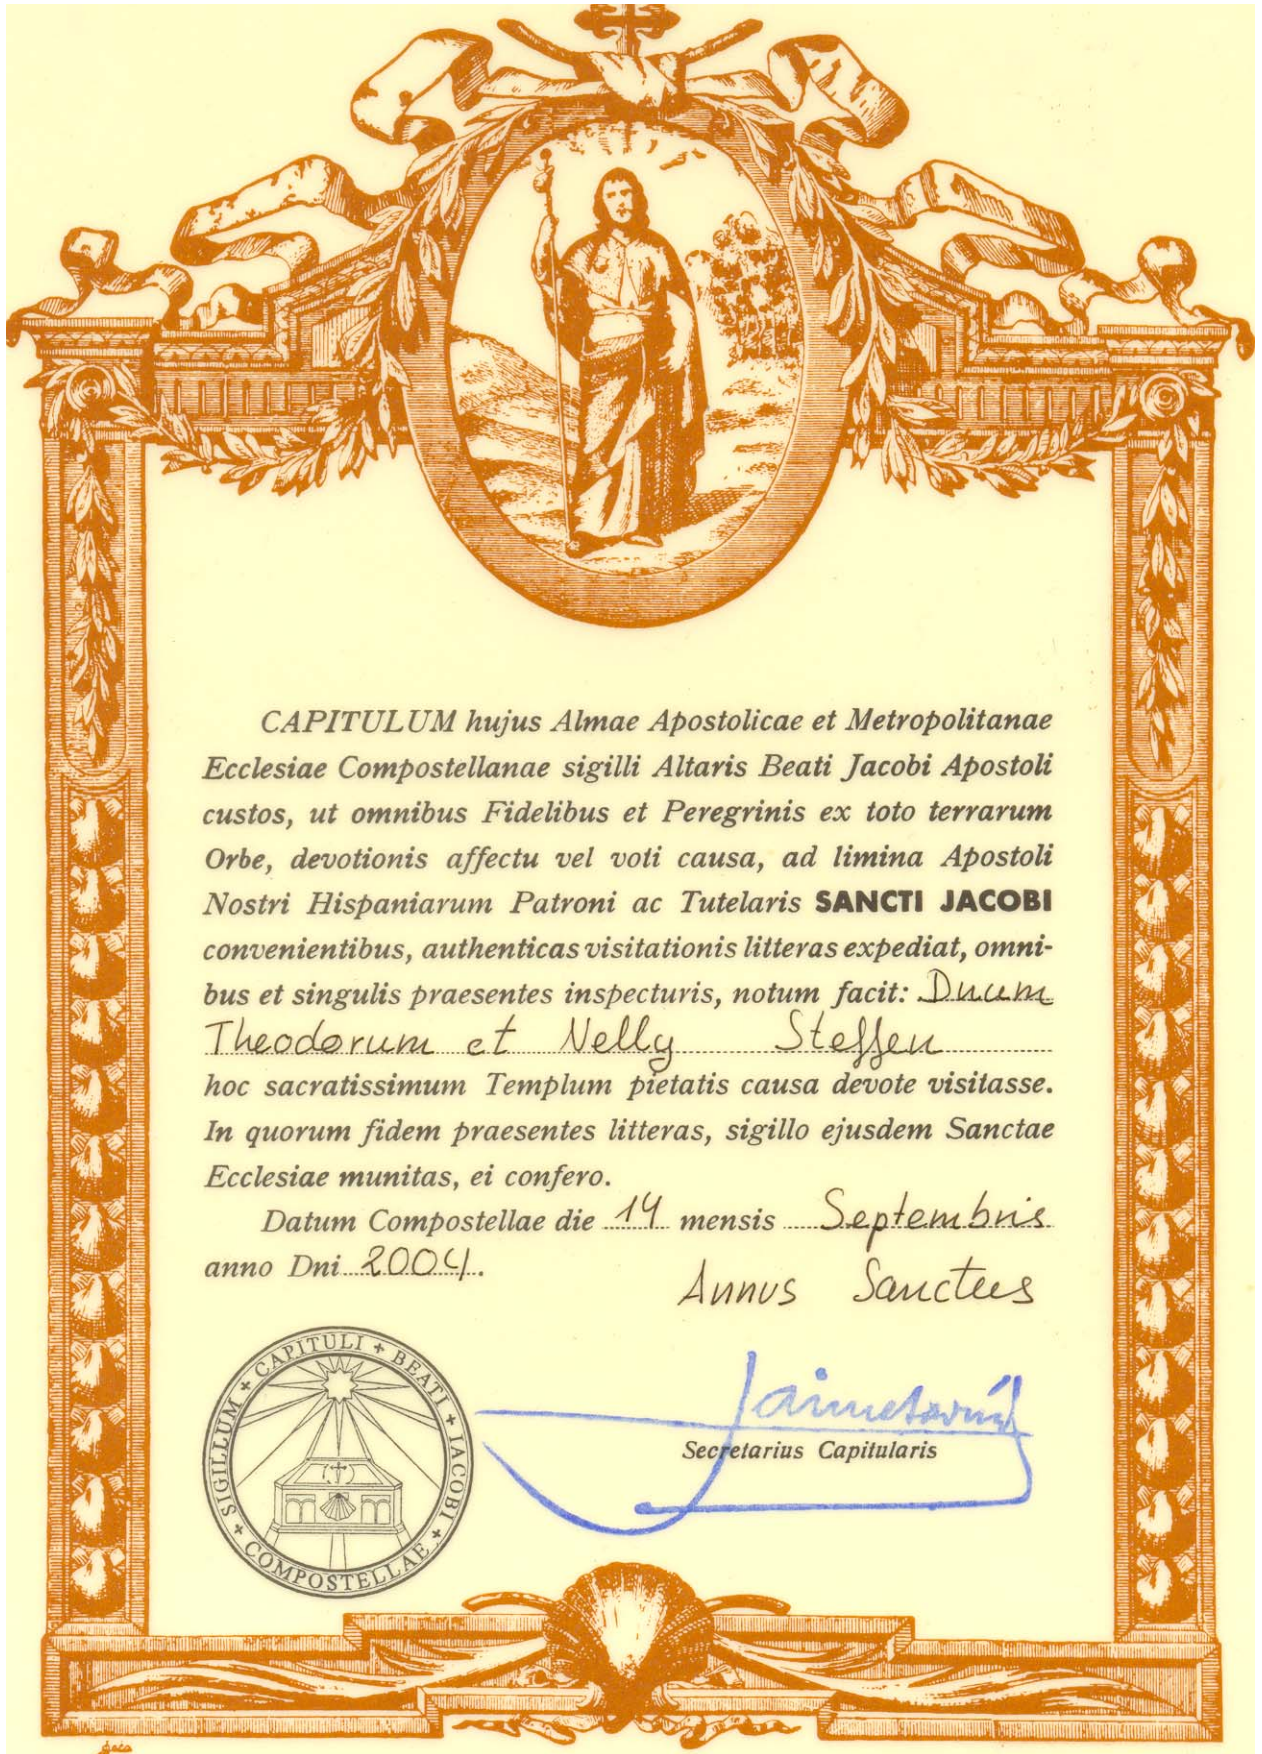 CAPITULUM hujus Almae Apostolicae et Metropolitanae
Ecclesiae Compostellanae sigilli Altaris Beati Jacobi Apostoli
custos, ut omnibus Fidelibus et Peregrinis ex toto terrarum
Orbe, devotionis affectu vel voti causa, ad limina Apostoli
Nostri Hispaniarum Patroni ac Tutelaris SANCTI JACOBI
convenientibus, authenticas visitationis litteras expediat, omni-
bus et singulis praesentes inspecturis, notum facit: Dnum
Theodorum et Nelly Steffen
hoc sacratissimum Templum pietatis causa devote visitasse.
In quorum fidem praesentes litteras, sigillo ejusdem Sanctae
Ecclesiae munitas, ei confero.
Datum Compostellae die 14 mensis Septembris
anno Dni 2004.
Annus Sanctus
Secretarius Capitularis
SIGILLUM + CAPITULI + BEATI + IACOBI + COMPOSTELLAE +